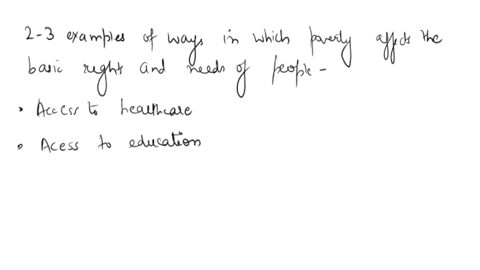 2-3 examples of ways in which poverty affects the
basic right and needs of people -
• Access to healthcare
• Acess to education